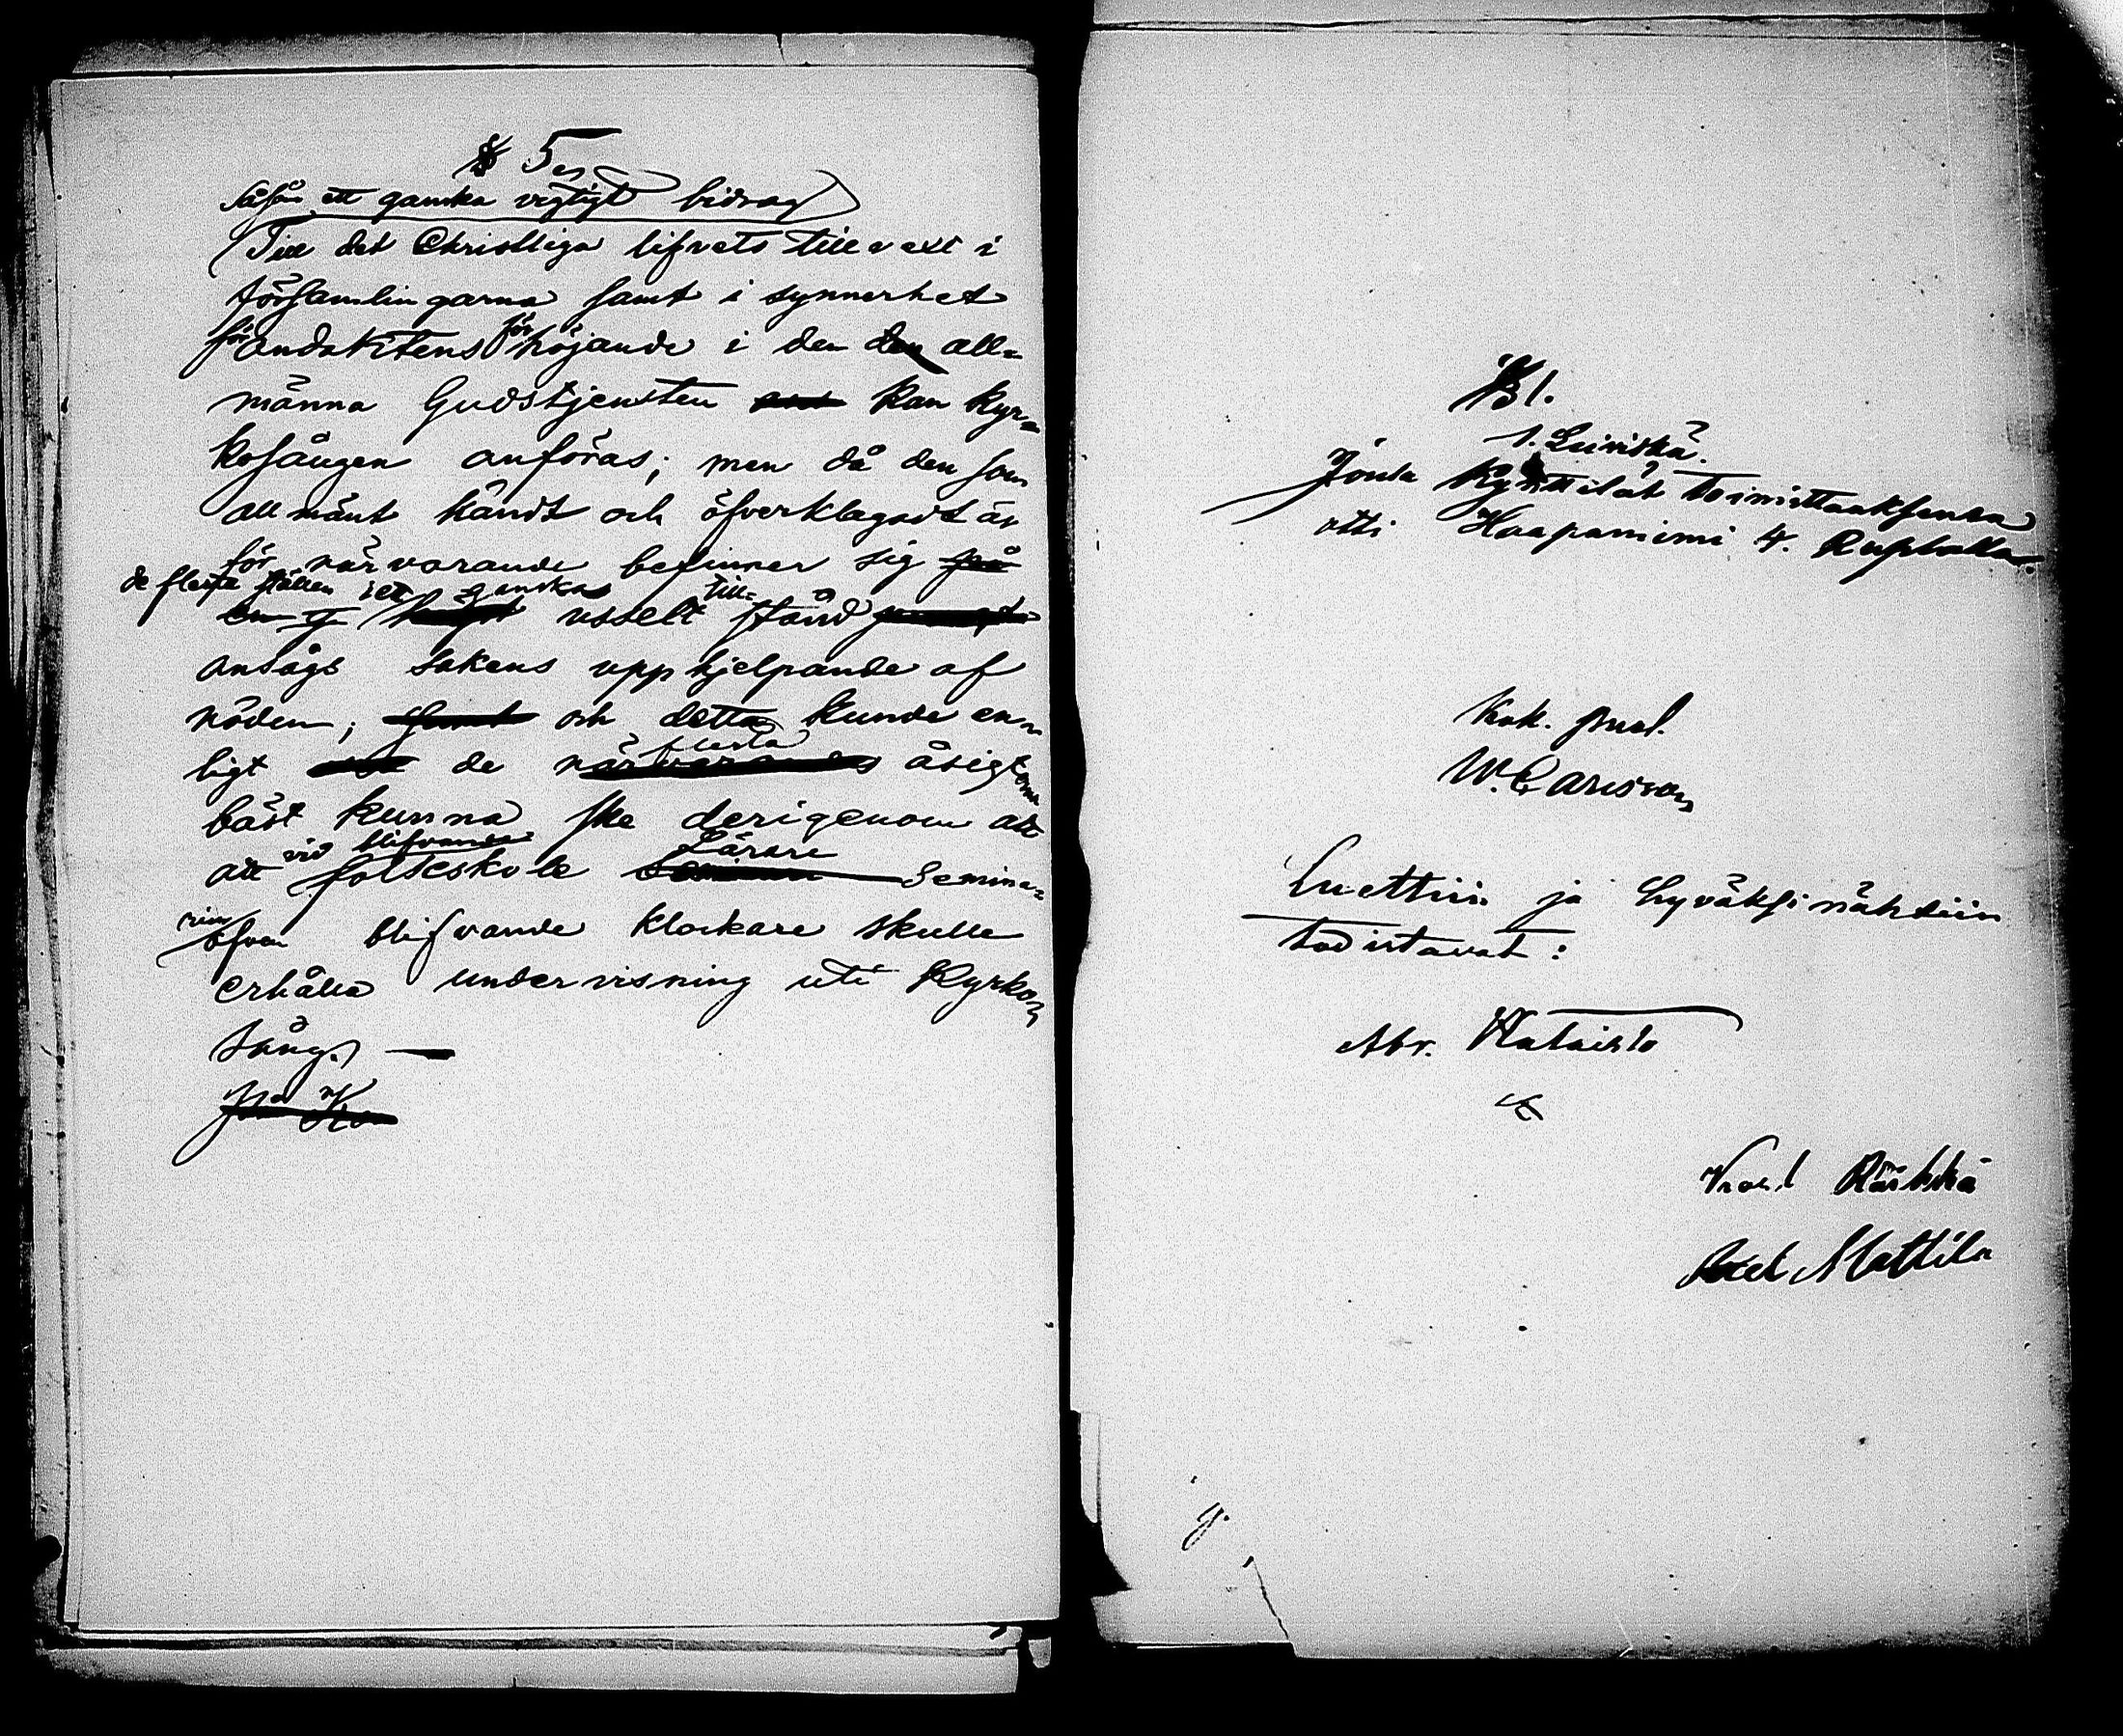 § 5
Såsom ett ganska vigtigt bidrag
Till det Christliga lifvets tillvext i
församlingarna samt i synnerhet
för andaktens för höjande i den den all=
männa Gudstjensten kan kyr=
kosången anföras; men då den som
allmänt kändt och öfverklagadt är
för närvarande befinner sig på
de flesta ställen i ett ganska till=
högst usselt stånd
ansågs sakens upphjelpande af
nöden; samt och detta kunde en=
ligt de flesta närvarandes åsigt
bäst kunna ske derigenom att
vid blifvande Lärare
att folkeskole Semina=
rium
äfven blifvande klockare skulle
erhålla undervisning uti Kyrko=
sång. —
§ 1.
1. Leiviskä.
Jonka Kynttilät toimittaaksensa
otti Haapaniemi 4. Ruplalla.
Kok. puol.
W. Carlsson
Luettiin ja hyväksi nähtiin
todistavat:
Abr. Hataisto
Räihkä
Axel Mattila